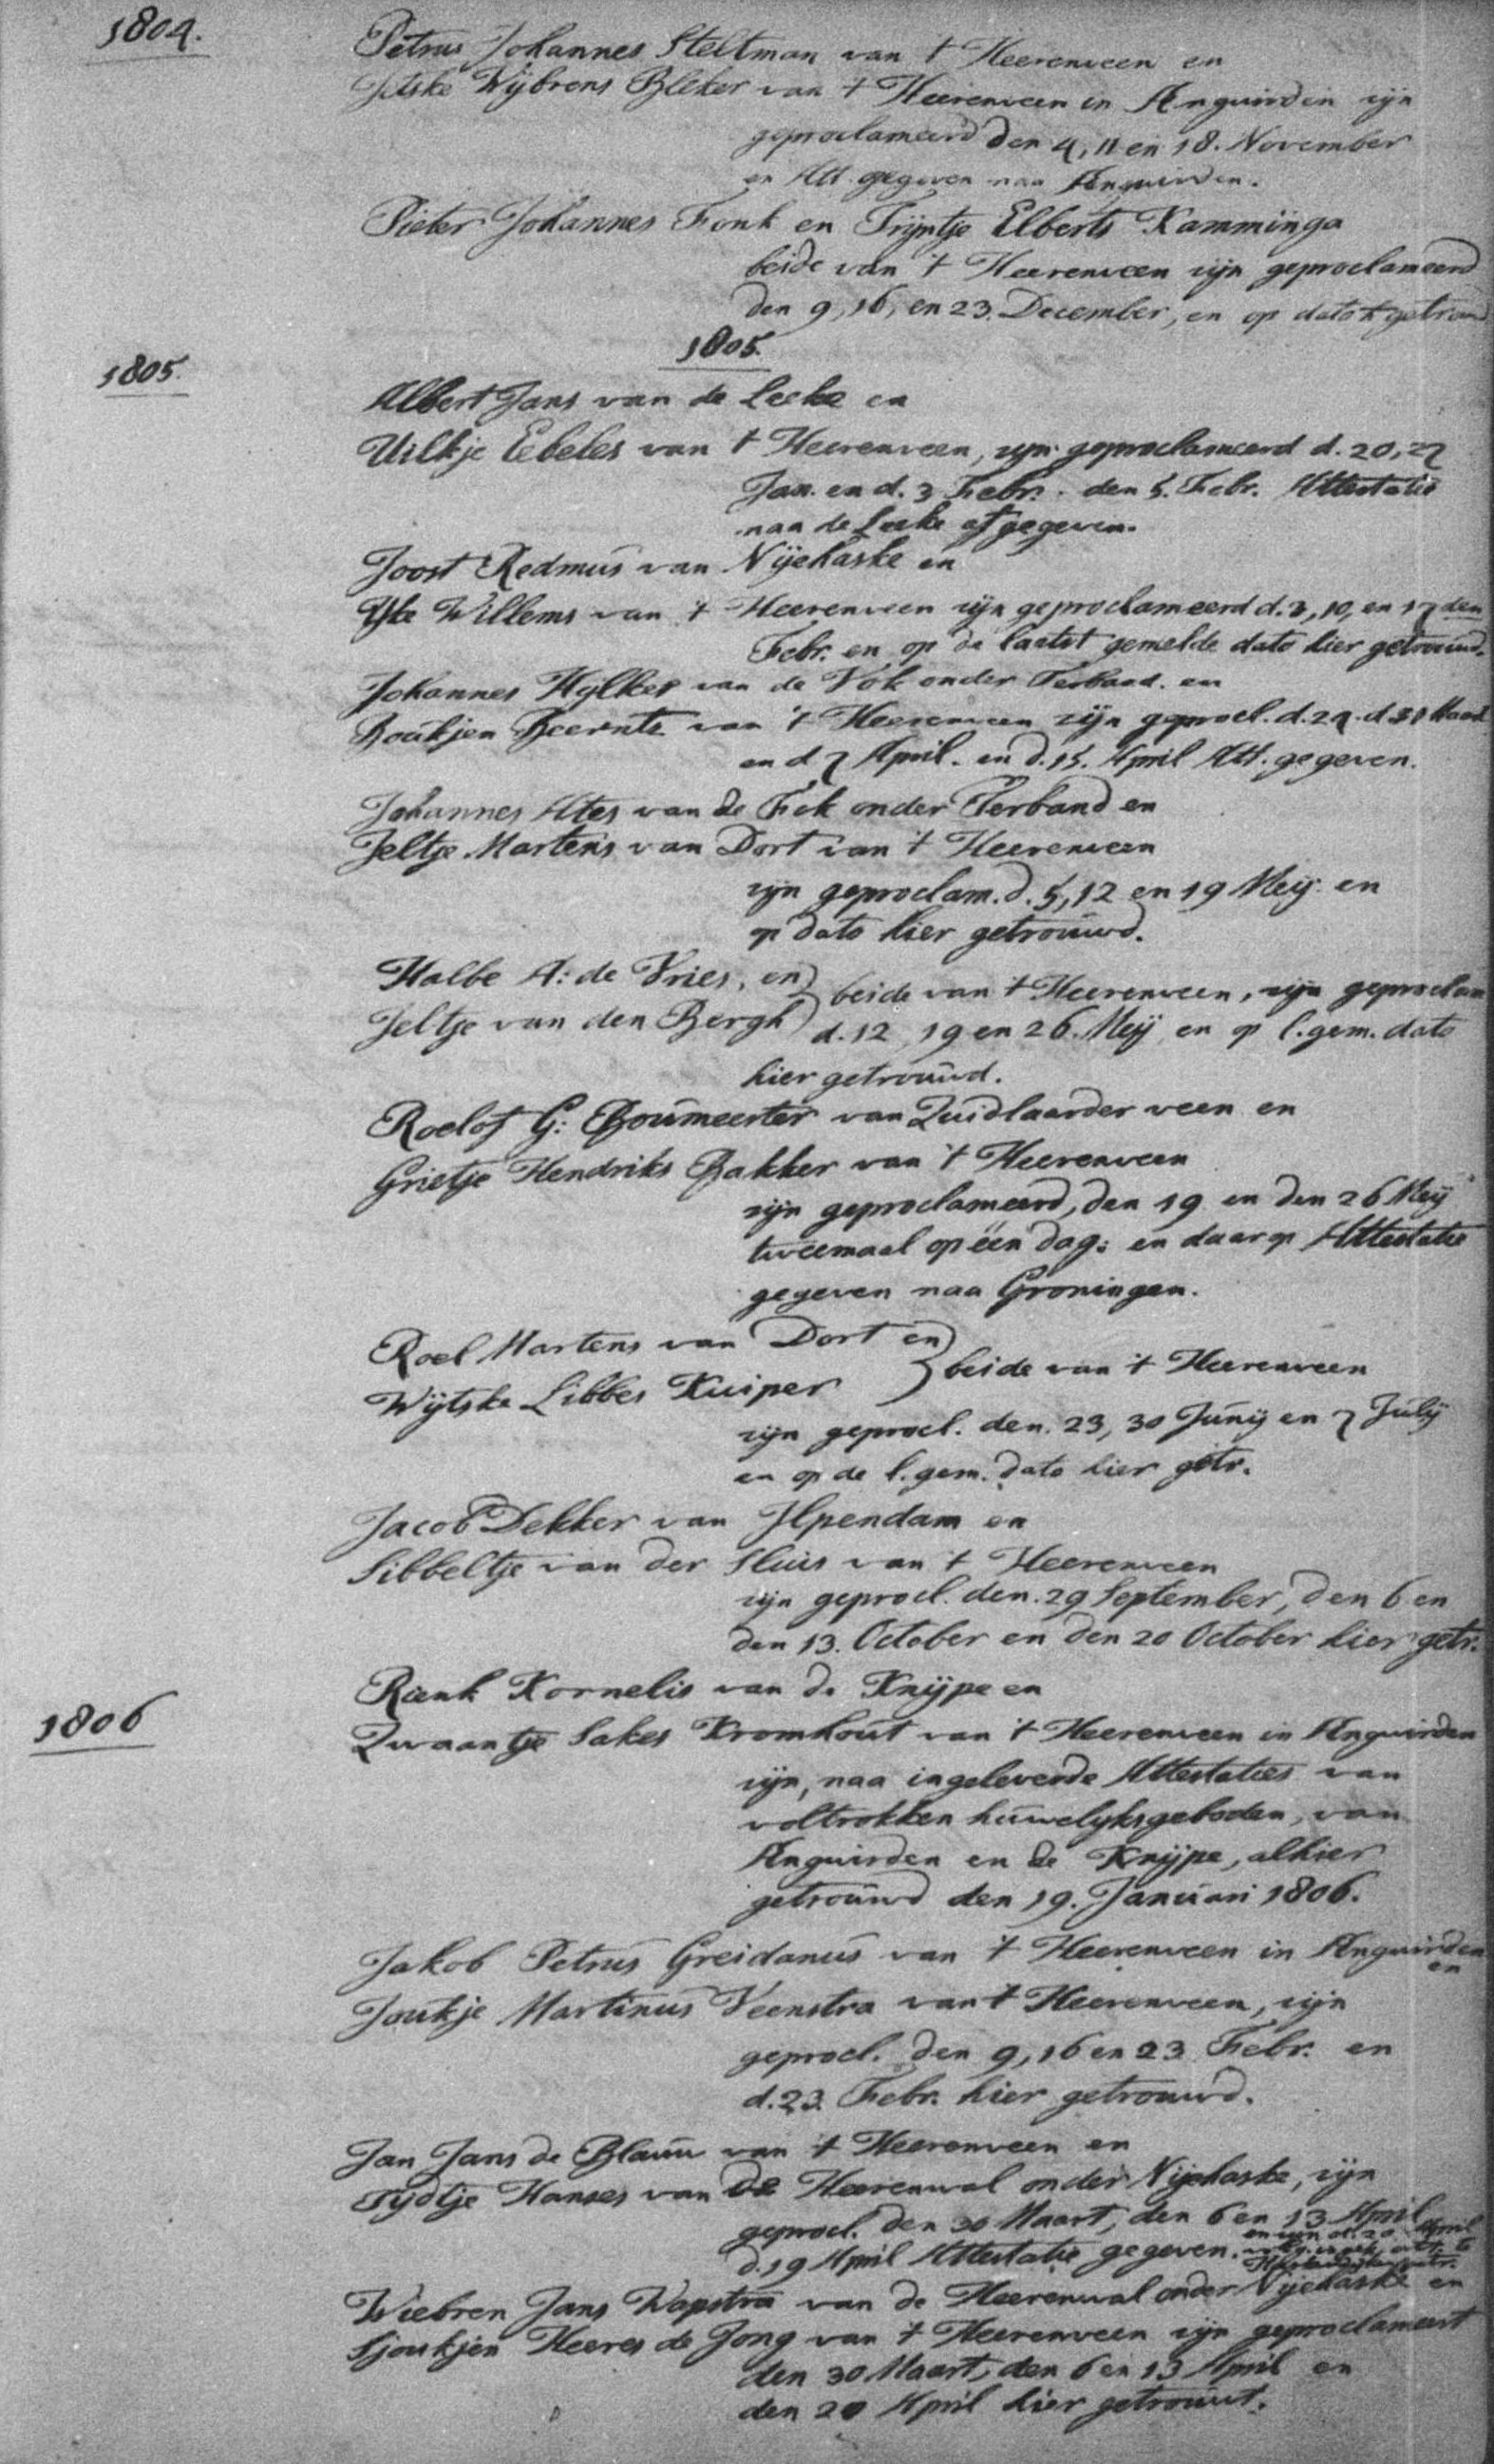 1804.
Petrus Johannes Steltman van 't Heerenveen en
Jitske Wybrens Bleker van 't Heerenveen in Ængwirden zijn
geproclameerd den 4, 11 en 18. November
en Att. gegeven naa Ængwirden.
Pieter Johannes Fonk en Trijntje Elberts Kamminga
beide van 't Heerenveen zijn geproclameerd
den 9, 16, en 23. December, en op dato getrouwd
1805.
1805.
Albert Jans van de Leeke en
Uilkje Eebeles van 't Heerenveen, zijn geproclameerd d. 20, 27
Jan. en d. 3 Febr. den 5. Febr. Attestatie
naa de Leeke afgegeven.
Joost Redmus van Nijehaske en
Yke Willems van 't Heerenveen zijn geproclameerd d. 3, 10, en 17 den
Febr. en op de laatst gemelde dato hier getrouwd.
Johannes Hylkes van de Vok onder Terband. en
Boukjen Beernts van 't Heerenveen zijn geprocl. d. 24. d 31 Maart
en d 7 April. en d. 15. April Att. gegeven.
Johannes Ates van de Fok onder Terband en
Jeltje Martens van Dort van 't Heerenveen
zijn geproclam. d. 5, 12 en 19 Meij en
op dato hier getrouwd.
Halbe A: de Vries, en
Jeltje van den Bergh
beide van 't Heerenveen, zijn geproclam
d. 12, 19 en 26. Meij en op l. gem. dato
hier getrouwd.
Roelof G: Boumeester van Zuidlaarder veen en
Grietje Hendriks Bakker van 't Heerenveen
zijn geproclameerd, den 19 en den 26 Meij
tweemaal op één dag: en daarop Attestatie
gegeven naa Groningen.
Roel Martens van Dort en
Wijtske Libbes Kuiper
beide van 't Heerenveen
zijn geprocl. den. 23, 30 Junij en 7 Julij
en op de l. gem. dato hier getr.
Jacob Dekker van Ilpendam en
Sibbeltje van der Sluis van 't Heerenveen
zijn geprocl. den. 29 September, den 6 en
den 13. October en den 20 October hier getr.
1806
Rienk Kornelis van de Knijpe en
Zwaantje Sakes Kromhout van 't Heerenveen in Ængwirden
zijn, naa ingeleverde Attestaties van
voltrokken huwelyksgeboden, van
Ængwirden en de Knijpe, alhier
getrouwd den 19. Januari 1806.
Jakob Petrus Greidanus van 't Heerenveen in Ængwirden
en
Joukje Martinus Veenstra van 't Heerenveen, zijn
geprocl. den 9, 16 en 23 Febr. en
d. 23. Febr. hier getrouwd.
Jan Jans de Blauw van 't Heerenveen en
Tydtje Hanses van de Heerenwal onder Nijehaske, zijn
geprocl. den 30 Maart, den 6 en 13 April
d. 19 April Attestatie gegeven. en zijn d. 20 April
Wiebren Jans Wapstra van de Heerenwal onder Nijehaske en
Sjoukjen Heeres de Jong van 't Heerenveen zijn geproclameert
den 30 Maart, den 6 en 13 April en
den 20 April hier getrouwt.